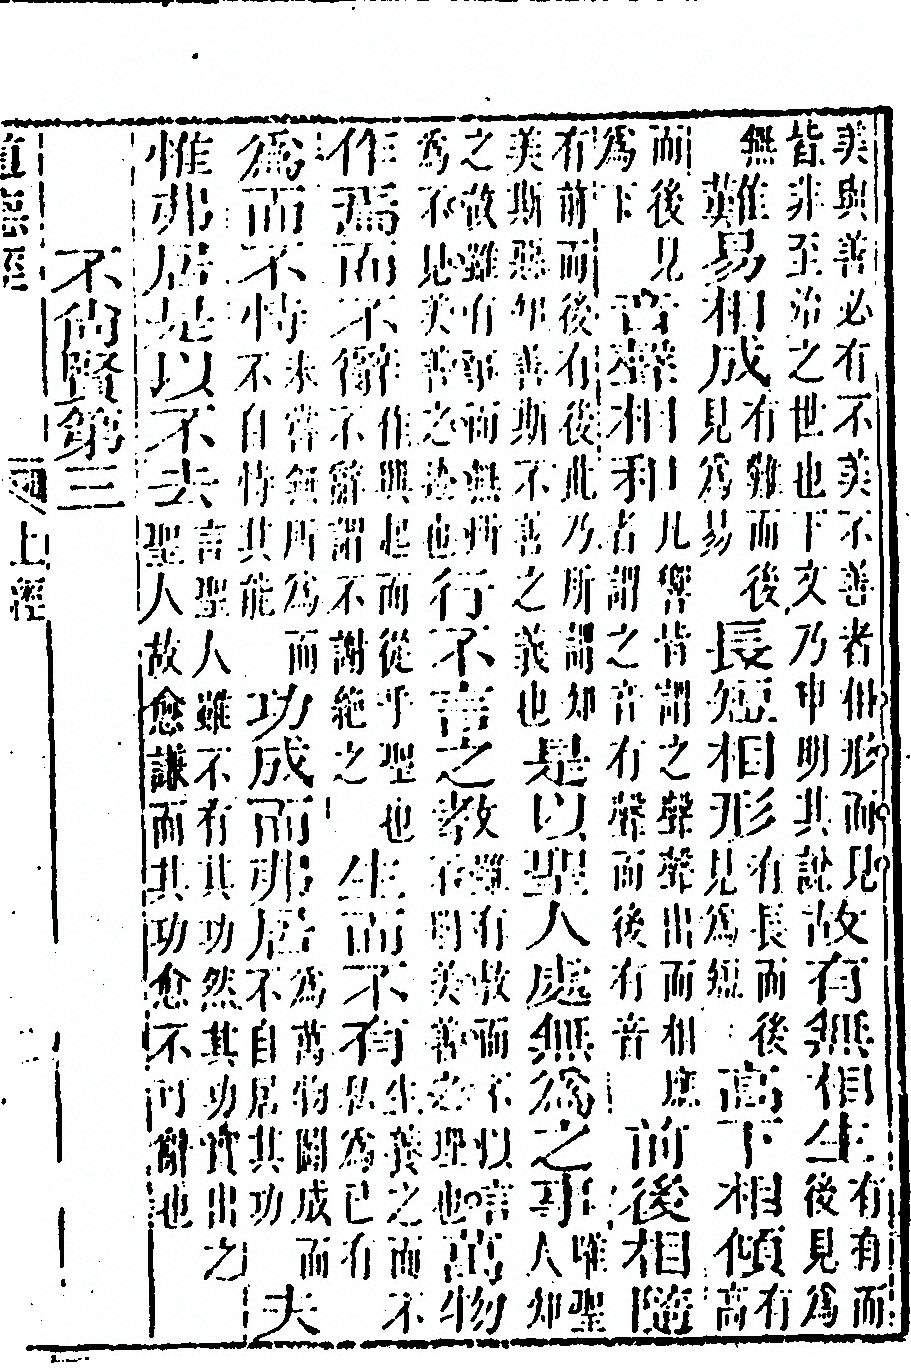 美與善必有不美不善者相形而見
皆非至治之世也下文乃申明其說
故有無相生
有有而
後見為
無
難易相成
有難而後
見為易
長短相形
有長而後
見為短
高下相傾
有
高
而後見
為下
音聲相和
凡響皆謂之聲聲出而相應
者謂之音有聲而後有音
前後相隨
有前而後有後此乃所謂知
美斯惡知善斯不善之義也
是以聖人處無為之事
唯聖
人知
之故雖有事而無所
為不見美善之迹也
行不言之教
雖有教而不以言
不明美善之理也
萬物
作焉而不辭
作與起而從乎聖也
不辭謂不謝絕之
生而不有
生養之而不
私為己有
為而不恃
未嘗無所為而
不自恃其能
功成而弗居
為萬物闢成而
不自居其功
夫
惟弗居是以不去
言聖人雖不有其功然其功實出之
聖人故愈謙而其功愈不可辭也
不尚賢第三
道德經
上經